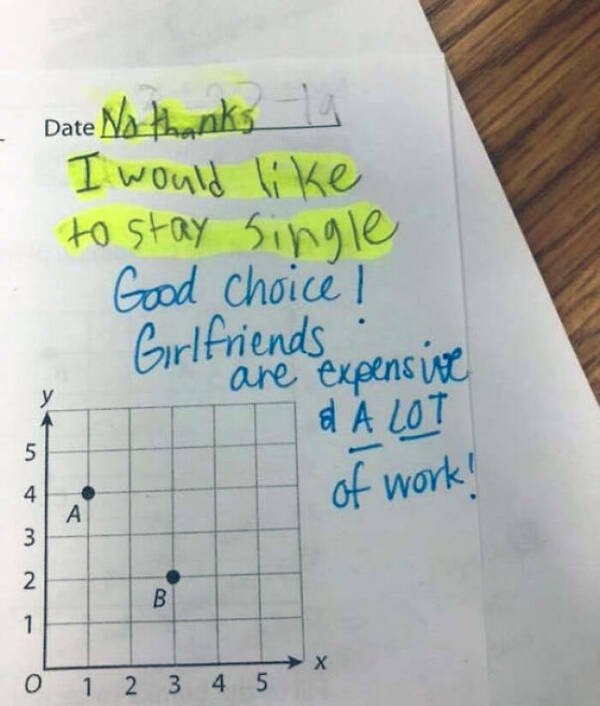 Date No thanks
I would like
to stay single
Good choice!
Girlfriends
are expensive
& A LOT
of work!
y
5
4
A
3
2
B
1
x
O 1 2 3 4 5